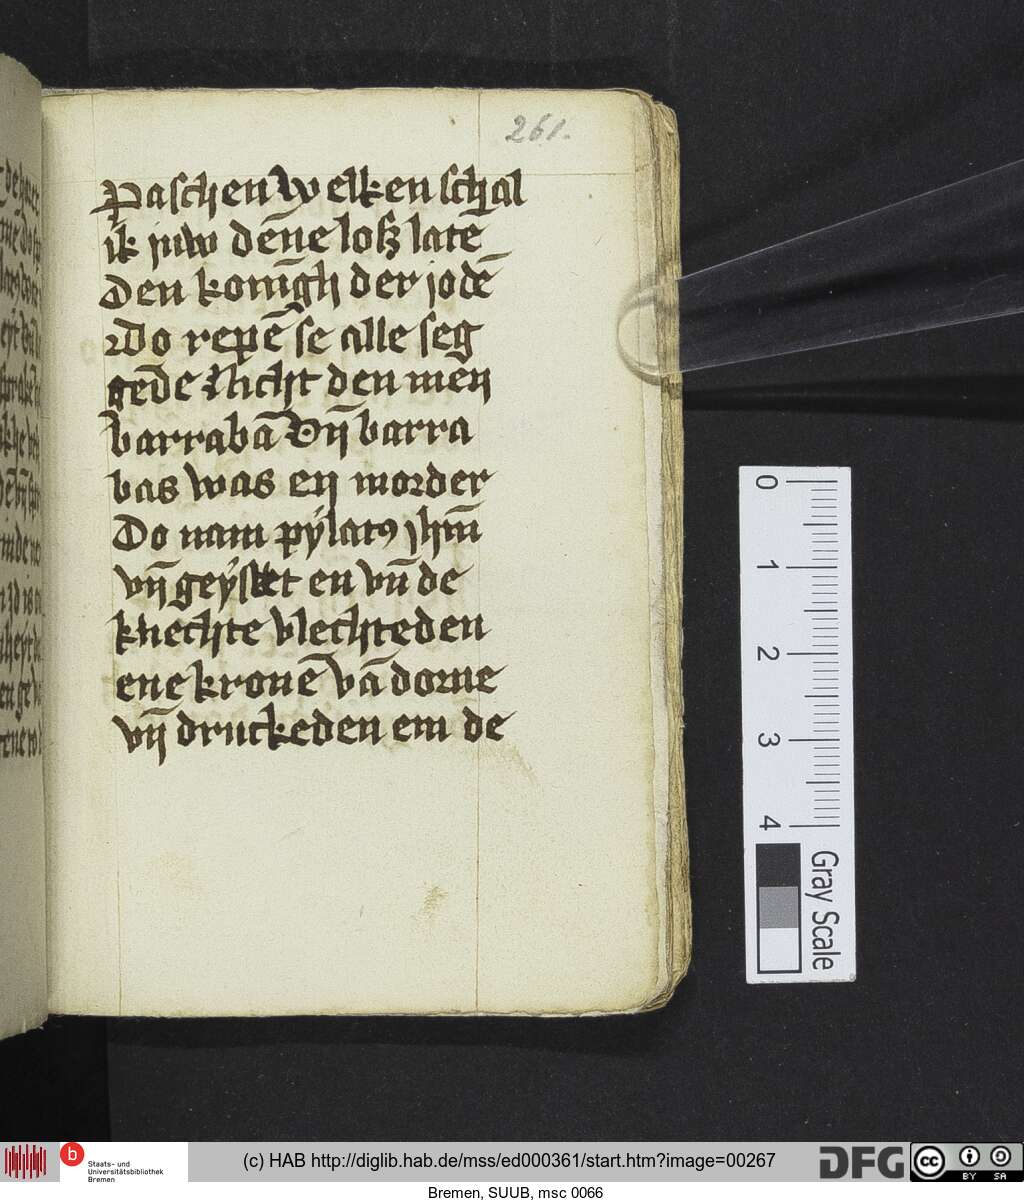 261.
Paschen welken schal
ik juw dēne losz latē
Den konīgh der jodē
Do repē se alle seg
gēde Nicht den men
barrabā Vn̄ barra
bas was en morder
Do nam pÿlatꝰ jhm̄
vn̄ geÿslet en vn̄ de
knechte vlechteden
ene kronē vā dorne
vn̄ druckeden em de
0
1
2
3
4
Gray Scale
b
Staats- und
Universitätsbibliothek
Bremen
(c) HAB http://diglib.hab.de/mss/ed000361/start.htm?image=00267
DFG
cc BY SA
Bremen, SUUB, msc 0066